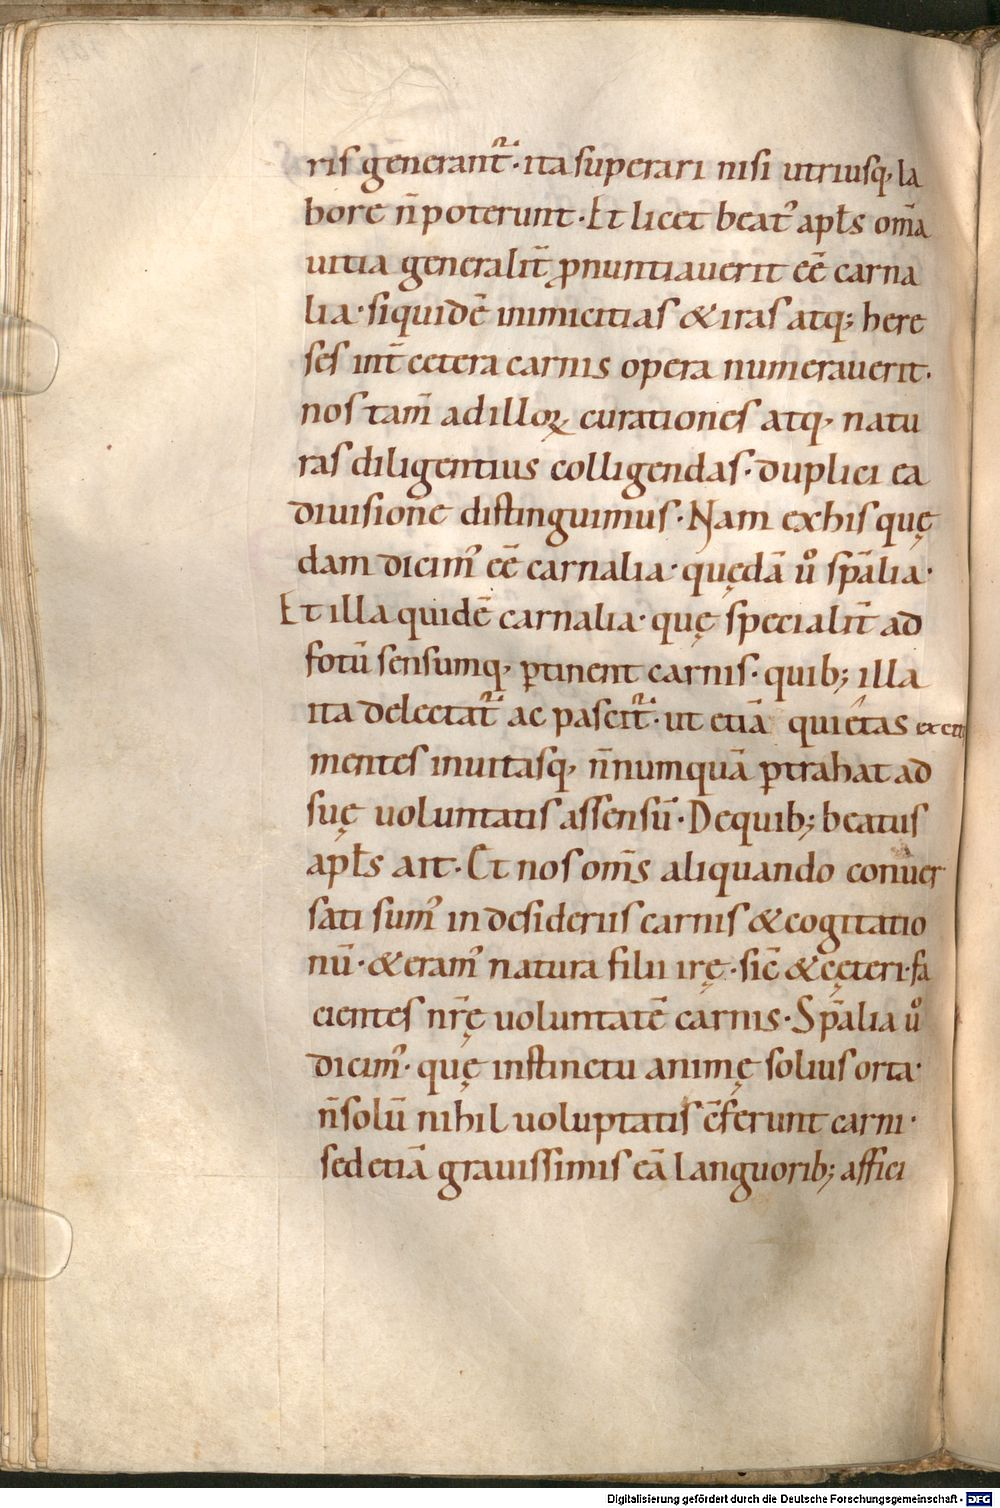 ris generant᷑· ita superari nisi utriusq, la
bore n̄ poterunt· Et licet beat᾽ apƚs om̄a
uitia generalit̄ ꝓnuntiauerit eē carna
lia· siquidē inimicitias & iras atq; here
ses int̄ cetera carnis opera numerauerit·
nos tam̄ ad illoꝝ curationes atq, natu
ras diligentius colligendas· duplici ea
diuisione distinguimus· Nam ex his quę
dam dicim᾽ eē carnalia· quędā uͦ sp̄alia·
Et illa quidē carnalia· quę specialit̄ ad
fotū sensumq, ꝑtinent carnis· quib; illa
ita delectat᷑ ac pascit᷑· ut etiā quietas
mentes inuitasq, n̄numquā ꝑtrahat ad
suę uoluntatis assensū· De quib; beatus
apƚs ait· Et nos om̄s aliquando conuer
sati sum᾽ in desideriis carnis & cogitatio
nū· & eram᾽ natura filii irę· sic̄ & cęteri· fa
cientes nr̄ę uoluntatē carnis· Sp̄alia uͦ
dicim᾽· quę instinctu animę solius orta·
n̄ solū nihil uoluptatis c̄ferunt carni·
sed etiā grauissimis eā languorib; affici
Digitalisierung gefördert durch die Deutsche Forschungsgemeinschaft - DFG